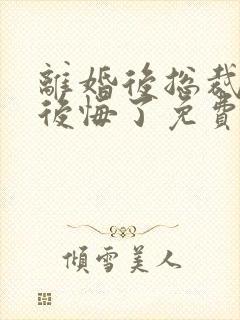 離婚後總裁
後悔了免費
傾雪美人